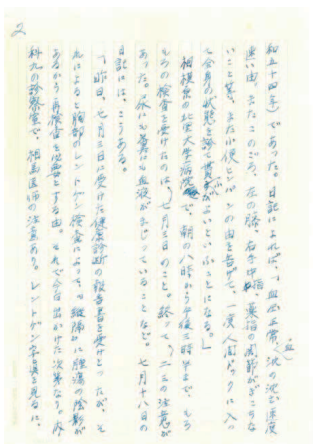 2
和五十四年)であった。日記によれば、「血圧正常、沈の沈か 速度
速い由。またこのごろ、左の膝、右手中指、薬指の関節がいこうな
いこと等、また小便ヒンパンの由を告げて、一度人間ドックに入っ
て全身の状態を診て貰ふがよいといふことになる。」
相模原の北里大学病院で、朝の八時から午後三時半まで、もろ
もろの検査を受けたのは七月三日のこと。終って、二三の注意が
あった。尿にも糞にも血液がまじっていることなど。七月十八日の
日記には、こうある。
「昨日、七月三日に受けた健康診断の報告書を受けとったが、そ
れによると胸部のレントゲン検査によって縦隔に腫瘍の陰影が
あるから再検査を必要とする由。それで今日出かけた次第なり。内
科九の診察室で、相馬医師の注意あり。レントゲン写真を見るに、